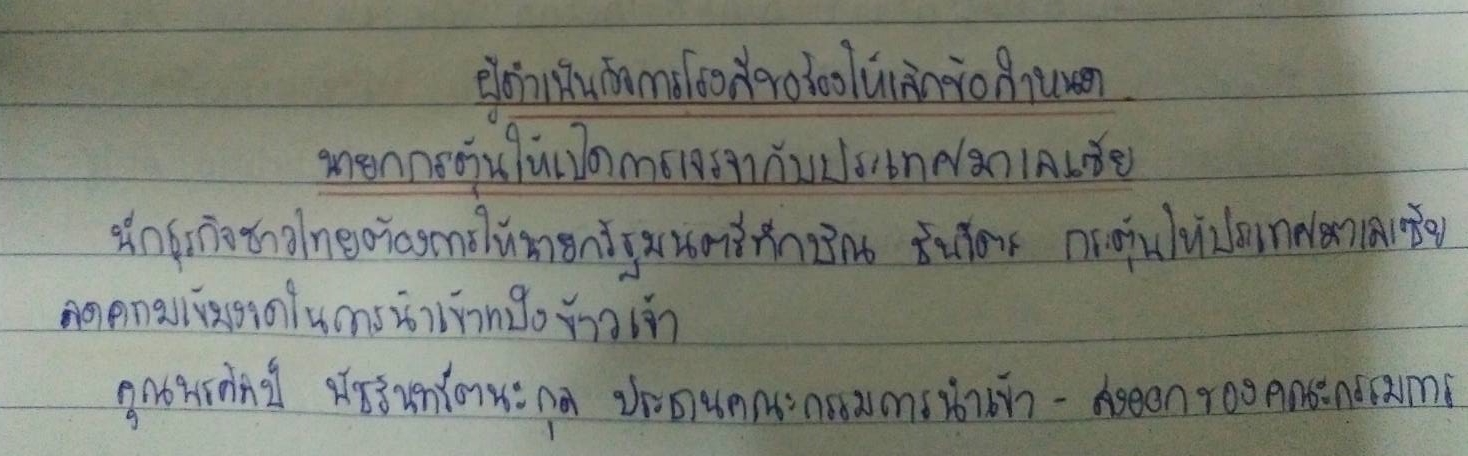 ผู้ดำเนินกิจการโรงสีขอร้องให้เลิกข้อกำหนด
นายกกระตุ้นให้เปิดการเจรจากับประเทศมาเลเซีย
นักธุรกิจชาวไทยต้องการให้นายกรัฐมนตรีทักษิณ ชินวัตร กระตุ้นให้ประเทศมาเลเซีย
ลดความเข้มงวดในการนำเข้าแป้งข้าวเจ้า
คุณพรศิลป์ พัชรินทร์ตนะกุล ประธานคณะกรรมการนำเข้า - ส่งออกของคณะกรรมการ